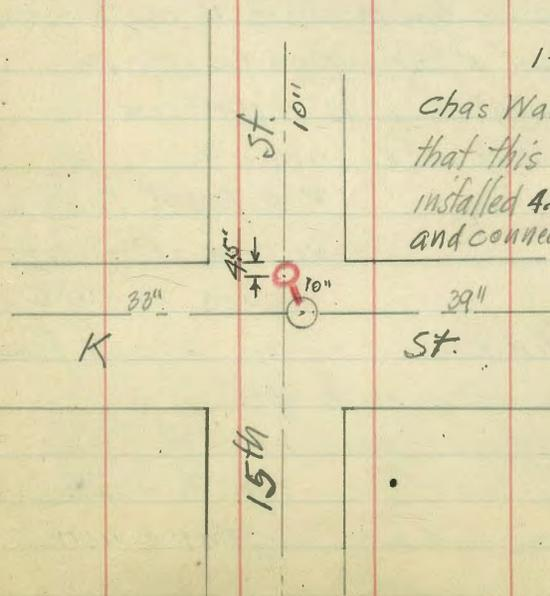 Chas
that this
installed
and
St. 10"
4.5"
10"
33"
39"
K St.
15th